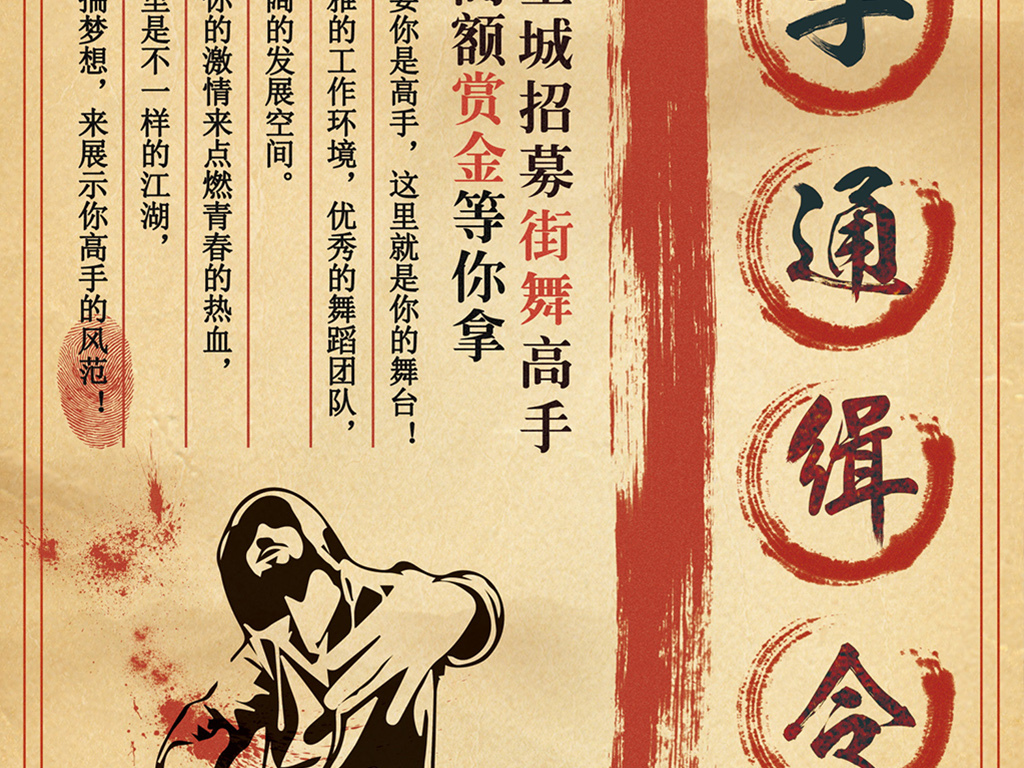 手
通
缉
令
城招募街舞高手
额赏金等你拿
你是高手，这里就是你的舞台！
的工作环境，优秀的舞蹈团队，
的发展空间。
你的激情来点燃青春的热血，
是不一样的江湖，
梦想，来展示你高手的风范！